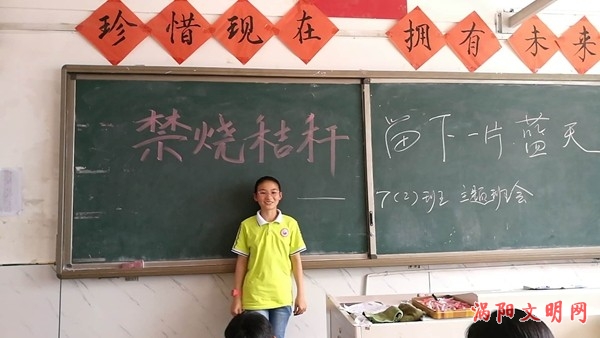 珍惜现在 拥有未来
禁烧秸秆
留下一片蓝天
7(2)班 主题班会
涡阳文明网